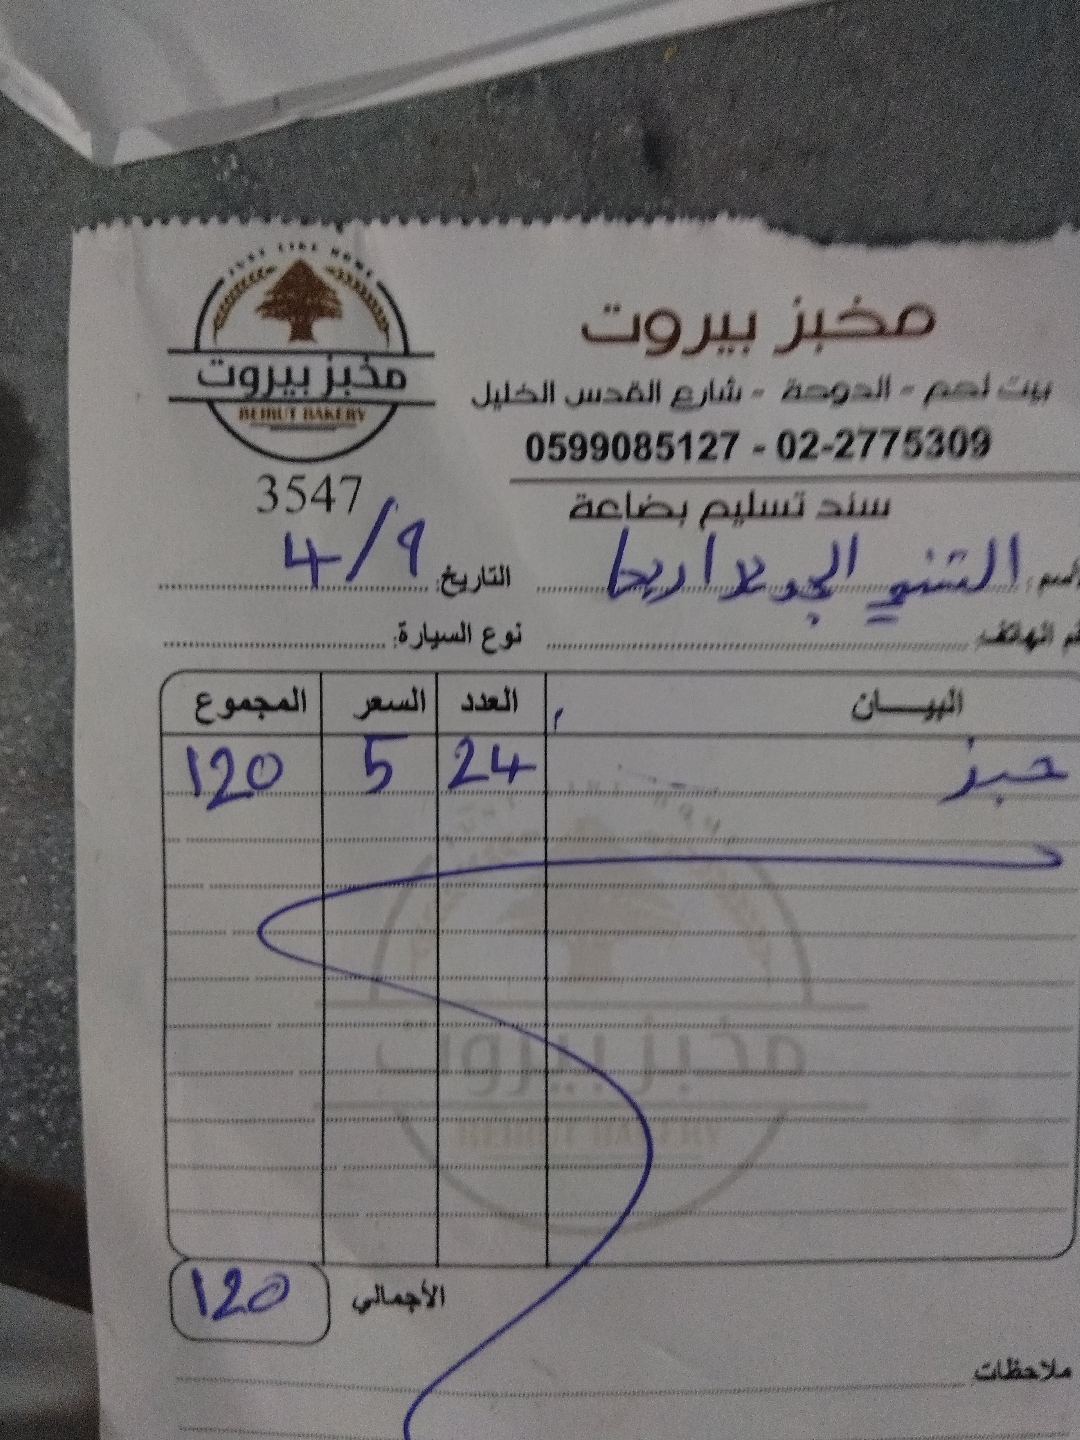 JUST LIKE HOME
مخبز بيروت
BEIRUT BAKERY
مخبز بيروت
بيت لحم - الدوحة - شارع القدس الخليل
0599085127 - 02-2775309
3547
سند تسليم بضاعة
الاسم: اريحا
التاريخ: 4/9
رقم الهاتف:
نوع السيارة:
البيـــان العدد السعر المجموع
خبز 24 5 120
مخبز بيروت
BEIRUT BAKERY
الأجمالي 120
ملاحظات